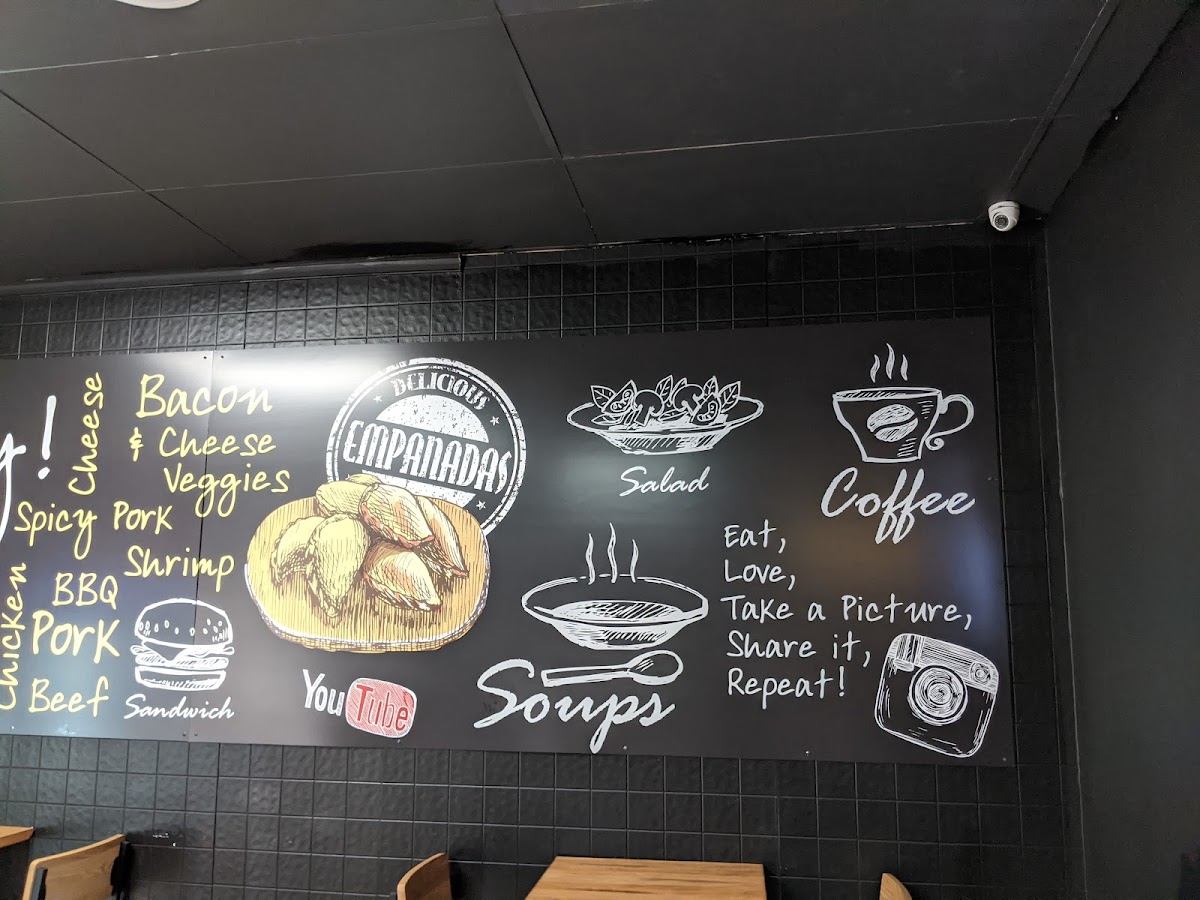 Cheese
Bacon
& Cheese
Veggies
Spicy Pork
Shrimp
Chicken
BBQ
Pork
Beef
Sandwich
DELICIOUS
EMPANADAS
YouTube
Salad
Soups
Coffee
Eat,
Love,
Take a Picture,
Share it,
Repeat!